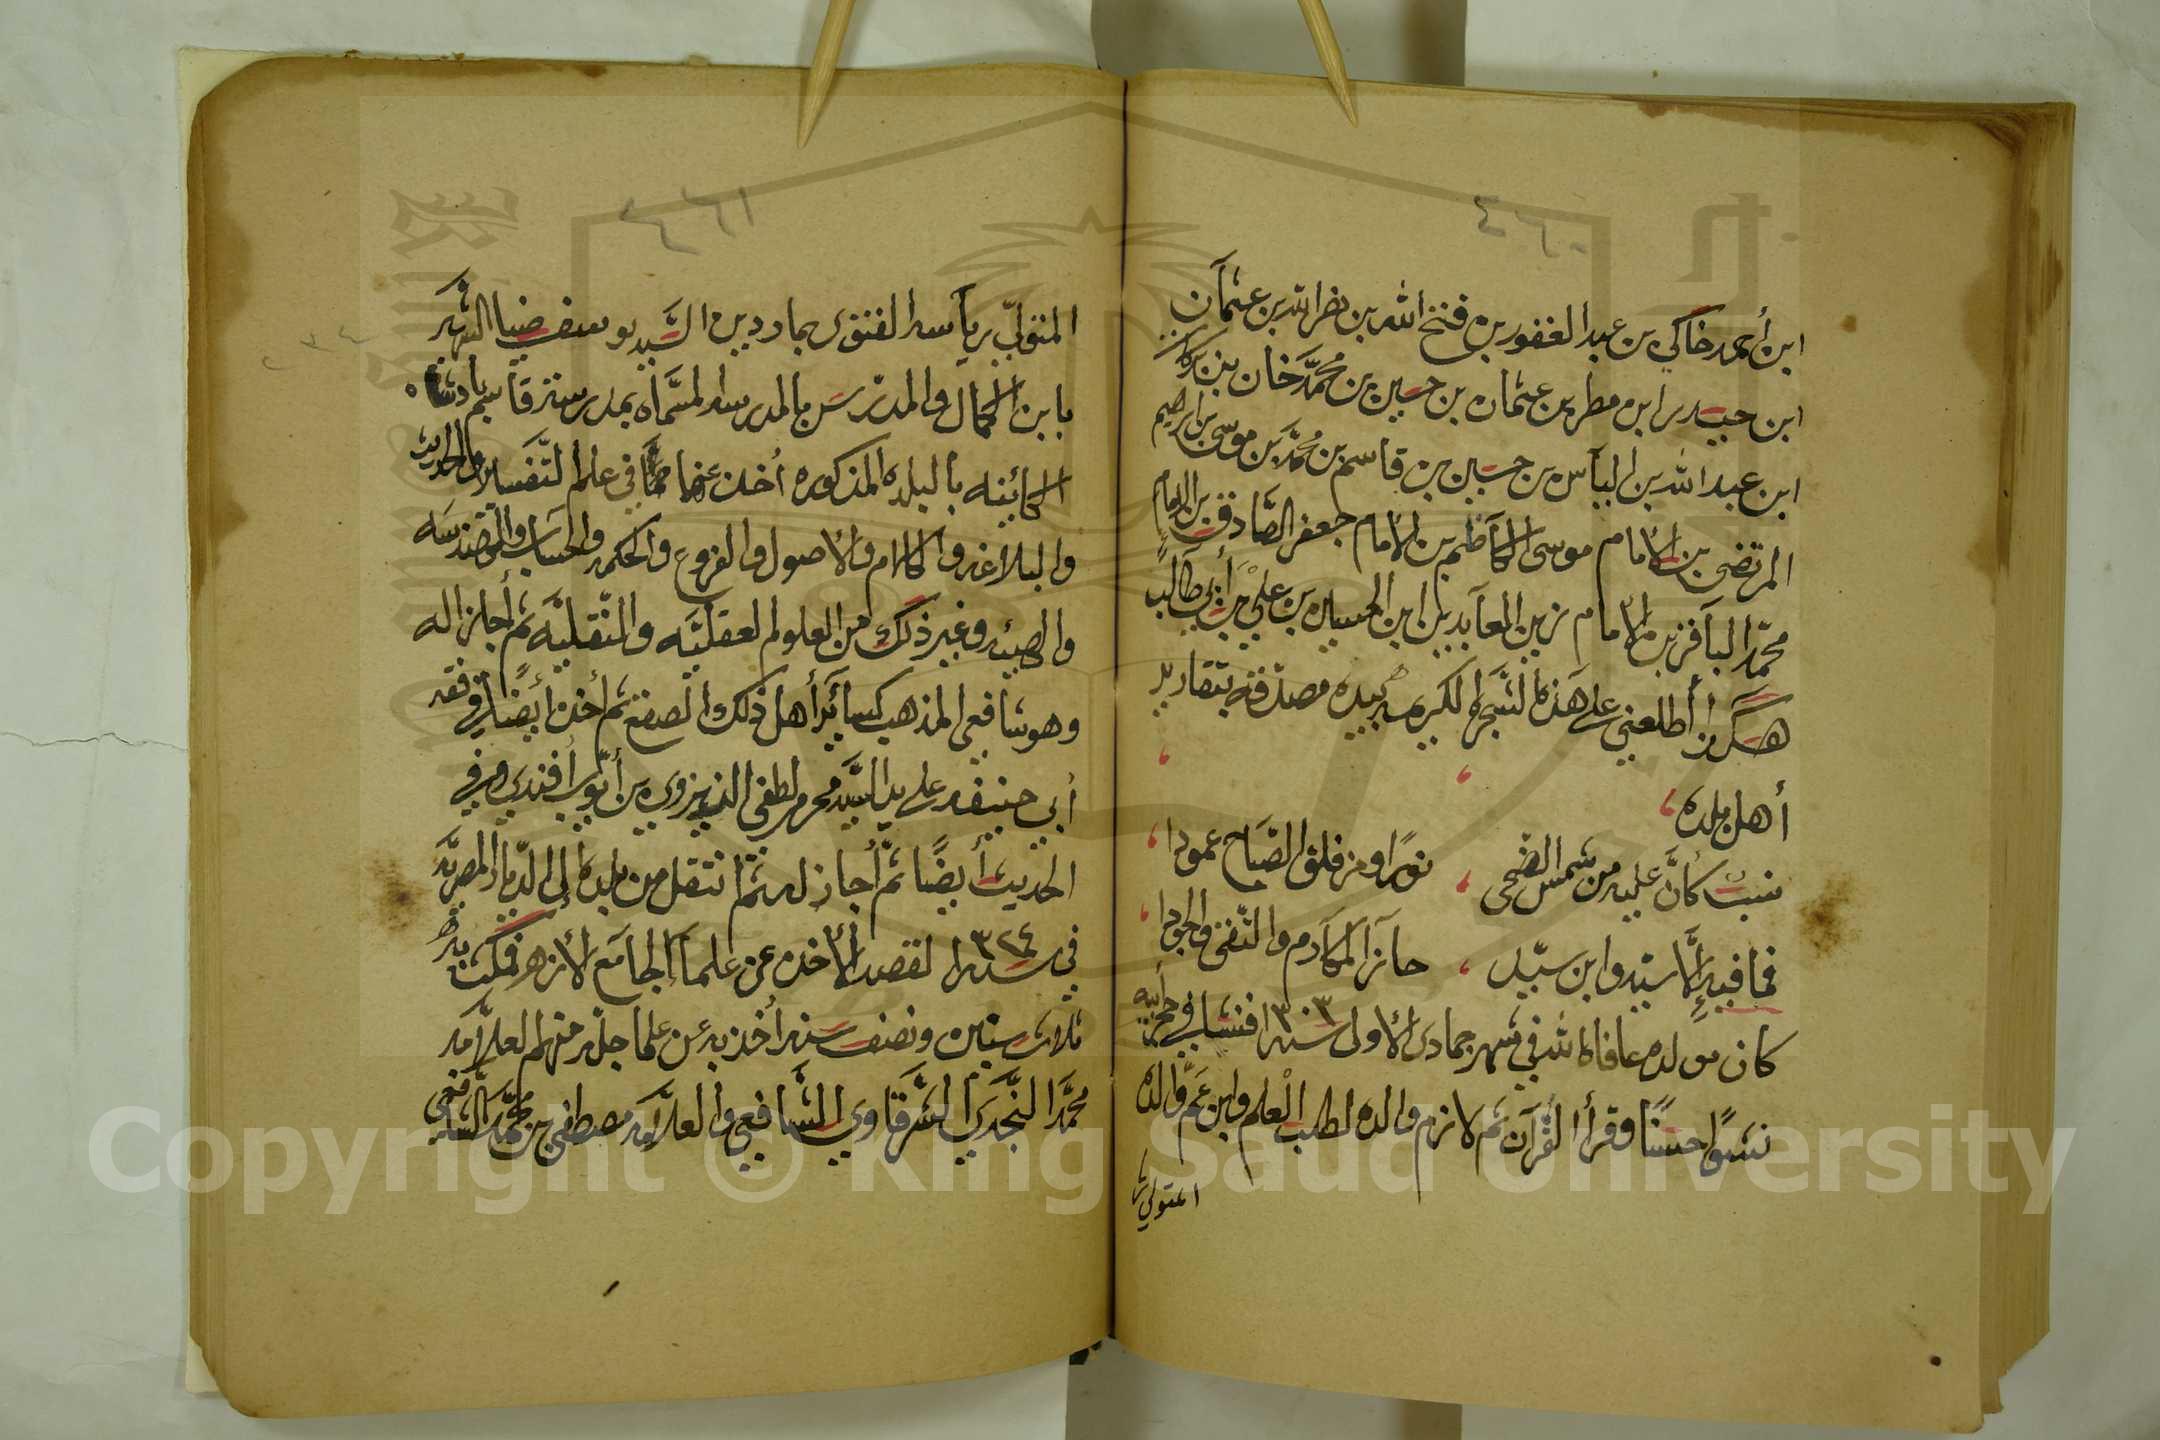 ٤٦٠
ابن أحمد خاكي بن عبد الغفور بن فتح الله بن نصر الله بن عثمان
ابن حيدر ابن مطر بن عثمان بن حسين بن محمد خان بن بركة
ابن عبد الله بن الياس بن حسين بن قاسم بن محمد بن موسى بن ابرهيم
المرتضى بن الأمام موسى الكاظم بن الأمام جعفر الصادق بن الامام
محمد الباقر بن الأمام زين العابدين ابن الحسين بن علي بن أبي طالب
هكذا أطلعني على هذه الشجرة الكريمة بيده مصدقة بتقارير
أهل بلده
نسب كأن عليه من شمس الضحى نورا ومن فلق الصباح عمودا
فما فيه إلا سيد وابن سيد حائز المكارم والتقى والجودا
كان مولده عافاه الله في شهر جمادى الأولى سنة ١٣٠٣ فنشأ في حجر أبيه
نشوا حسنا وقرأ القرآن ثم لازم والده لطلب العلم وابن عم والده
المتولي
٤٦١
المتولي برياسة الفتوى بماردين السيد يوسف ضيا الشهير
بابن الكمال والمدرس بالمدرسة المسماه بمدرسة قاسم بادشاه
الكائنه بالبلده المذكوره أخذ عنهما في علم التفسير والحديث
والبلاغه والكلام والأصول والفروع والحكمه والحساب والهندسه
والهيئه وغير ذلك من العلوم العقليه والنقليه ثم أجازا له
وهو شافعي المذهب كسائر أهل ذلك الصقع ثم أخذ أيضا في فقه
أبي حنيفه على يد السيد محرم لطفي الديزوي بن أيوب أفندي وفي
الحديث أيضا ثم أجاز له ثم انتقل من بلده إلى الديار المصريه
في سنة ١٣٢٤ لقصد الأخذ عن علماء الجامع الأزهر فمكث به
ثلاث سنين ونصف سنه أخذ به عن علما جله منهم العلامه
محمد النجدي الشرقاوي الشافعي والعلامه مصطفى بن محمد الشافعي
Copyright © King Saud University